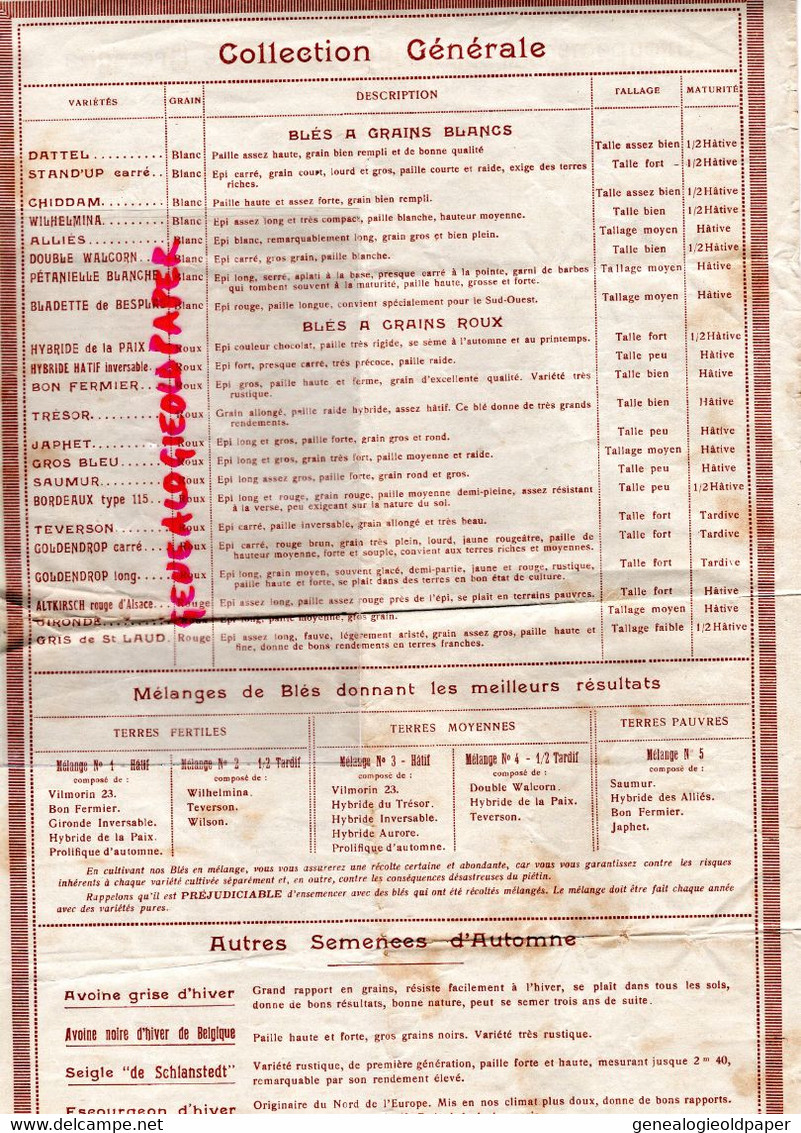 Collection Générale
VARIÉTÉS GRAIN DESCRIPTION TALLAGE MATURITÉ
BLÉS A GRAINS BLANCS
DATTEL .......... Blanc Paille assez haute, grain bien rempli et de bonne qualité Talle assez bien 1/2 Hâtive
STAND'UP carré.. Blanc Epi carré, grain court, lourd et gros, paille courte et raide, exige des terres Talle fort - 1/2 Hâtive
riches.
CHIDDAM......... Blanc Paille haute et assez forte, grain bien rempli. Talle assez bien 1/2 Hâtive
WILHELMINA...... Blanc Epi assez long et très compact, paille blanche, hauteur moyenne. Talle bien 1/2 Hâtive
ALLIÉS.......... Blanc Epi blanc, remarquablement long, grain gros et bien plein. Tallage moyen Hâtive
DOUBLE WALCORN.. Blanc Epi carré, gros grain, paille blanche. Talle bien 1/2 Hâtive
PÉTANIELLE BLANCHE Blanc Epi long, serré, aplati à la base, presque carré à la pointe, garni de barbes Tallage moyen Hâtive
qui tombent souvent à la maturité, paille haute, grosse et forte.
BLADETTE de BESPLAS Blanc Epi rouge, paille longue, convient spécialement pour le Sud-Ouest. Tallage moyen Hâtive
BLÉS A GRAINS ROUX
HYBRIDE de la PAIX Roux Epi couleur chocolat, paille très rigide, se sème à l'automne et au printemps. Talle fort 1/2 Hâtive
HYBRIDE HATIF inversable.. Roux Epi fort, presque carré, très précoce, paille raide. Talle peu Hâtive
BON FERMIER... Roux Epi gros, paille haute et ferme, grain d'excellente qualité. Variété très Talle bien Hâtive
rustique.
TRÉSOR.......... Roux Grain allongé, paille raide hybride, assez hâtif. Ce blé donne de très grands Talle bien Hâtive
rendements.
JAPHET.......... Roux Epi long et gros, paille forte, grain gros et rond. Talle peu Hâtive
GROS BLEU...... Roux Epi long et gros, grain très fort, paille moyenne et raide. Tallage moyen Hâtive
SAUMUR.......... Roux Epi long assez gros, paille forte, grain rond et gros. Talle peu Hâtive
BORDEAUX type 115.. Roux Epi long et rouge, grain rouge, paille moyenne demi-pleine, assez résistant Talle peu 1/2 Hâtive
à la verse, peu exigeant sur la nature du sol.
TEVERSON........ Roux Epi carré, paille inversable, grain allongé et très beau. Talle fort Tardive
GOLDENDROP carré... Roux Epi carré, rouge brun, grain très plein, lourd, jaune rougeâtre, paille de Talle fort Tardive
hauteur moyenne, forte et souple, convient aux terres riches et moyennes.
GOLDENDROP long..... Roux Epi long, grain moyen, souvent glacé, demi-partie, jaune et rouge, rustique, Talle fort Tardive
paille haute et forte, se plait dans des terres en bon état de culture.
ALTKIRSCH rouge d'Alsace... Rouge Epi assez long, paille assez rouge près de l'épi, se plait en terrains pauvres. Talle fort Hâtive
GIRONDE........ Rouge Epi long, paille moyenne, gros grain. Tallage moyen Hâtive
GRIS de St LAUD. Rouge Epi assez long, fauve, légèrement aristé, grain assez gros, paille haute et Tallage faible 1/2 Hâtive
fine, donne de bons rendements en terres franches.
GENEALOGIEOLDPAPER
Mélanges de Blés donnant les meilleurs résultats
TERRES FERTILES TERRES MOYENNES TERRES PAUVRES
Mélange N° 1 - Hâtif Mélange N° 2 - 1/2 Tardif Mélange N° 3 - Hâtif Mélange N° 4 - 1/2 Tardif Mélange N° 5
composé de : composé de : composé de : composé de : composé de :
Vilmorin 23. Wilhelmina. Vilmorin 23. Double Walcorn. Saumur.
Bon Fermier. Teverson. Hybride du Trésor. Hybride de la Paix. Hybride des Alliés.
Gironde Inversable. Wilson. Hybride Inversable. Teverson. Bon Fermier.
Hybride de la Paix. Hybride Aurore. Japhet.
Prolifique d'automne. Prolifique d'automne.
En cultivant nos Blés en mélange, vous vous assurerez une récolte certaine et abondante, car vous vous garantissez contre les risques
inhérents à chaque variété cultivée séparément et, en outre, contre les conséquences désastreuses du piétin.
Rappelons qu'il est PRÉJUDICIABLE d'ensemencer avec des blés qui ont été récoltés mélangés. Le mélange doit être fait chaque année
avec des variétés pures.
Autres Semences d'Automne
Avoine grise d'hiver Grand rapport en grains, résiste facilement à l'hiver, se plaît dans tous les sols,
donne de bons résultats, bonne nature, peut se semer trois ans de suite.
Avoine noire d'hiver de Belgique Paille haute et forte, gros grains noirs. Variété très rustique.
Seigle "de Schlanstedt" Variété rustique, de première génération, paille forte et haute, mesurant jusque 2 m 40,
remarquable par son rendement élevé.
Escourgeon d'hiver Originaire du Nord de l'Europe. Mis en nos climat plus doux, donne de bons rapports.
www.delcampe.net genealogieoldpaper